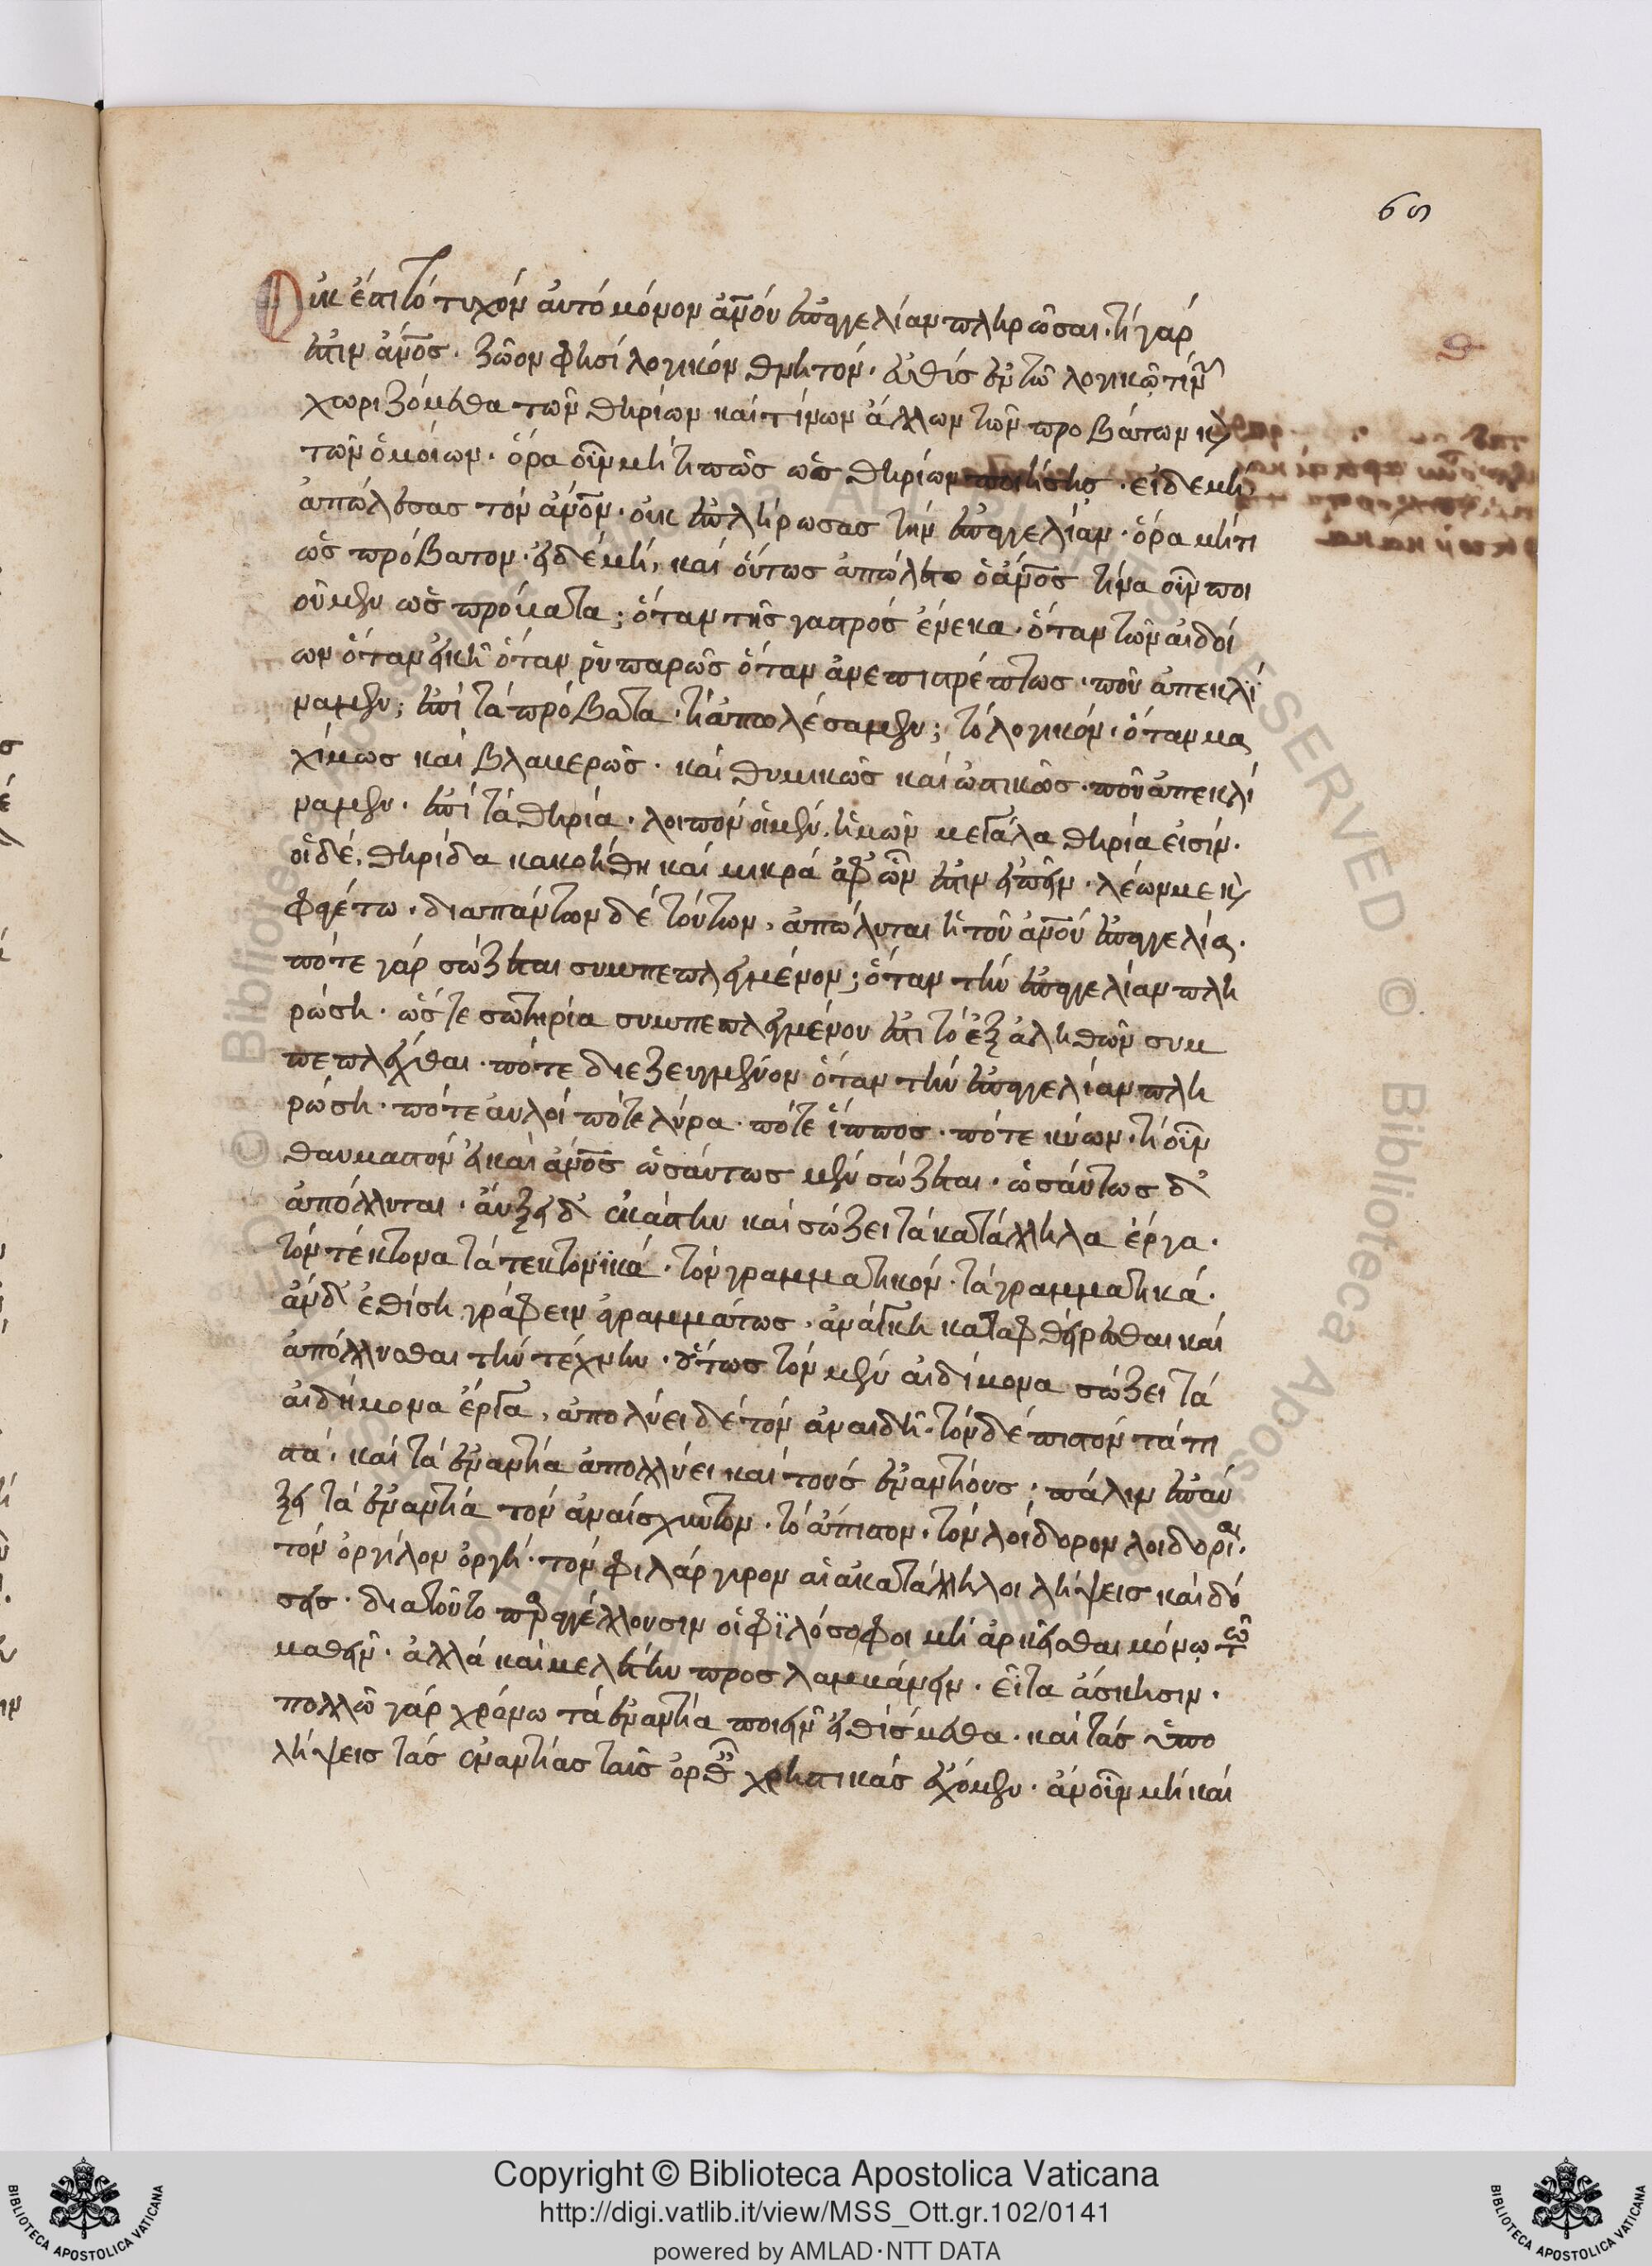 65
θ
Οὐκ ἔστι τὸ τυχὸν αὐτὸ μόνον ἀν̅ου ἐπαγγελίαν πληρῶσαι· τί γάρ
ἐστιν ἄν̅οσ· ζῶον φησὶ λογικὸν θνητόν· εὐθὺσ ἐν τῶ λογικῶ τίνων
χωριζόμεθα τῶν θηρίων καὶ τίνων ἄλλων τῶν προβάτων καὶ
τῶν ὁμοίων· ὅρα οὖν μή τι πῶσ ὡσ θηρίον ποιήσησ· εἰ δε μή,
ἀπώλεσασ τὸν ἄν̅ον· οὐκ ἐπλήρωσασ τὴν ἐπαγγελίαν· ὅρα μή τι
ὡσ πρόβατον· εἰ δὲ μή, καὶ οὕτωσ ἀπώλετο ὁ ἄν̅οσ τίνα οὖν ποι
οῦμεν ὡσ πρόβατα; ὅταν τῆσ γαστρὸσ ἕνεκα· ὅταν τῶν αἰδοί
ων ὅταν εἰκῆ ὅταν ῥυπαρῶσ ὅταν ἀνεπιστρέπτωσ· ποῦ ἀπεκλί
ναμεν; ἐπὶ τὰ πρόβατα· τί ἀπωλέσαμεν; τὸ λογικόν· ὅταν μα
χίμωσ καὶ βλαβερῶσ· καὶ θυμικῶσ καὶ ὠστικῶσ· ποῦ ἀπεκλί
ναμεν· ἐπὶ τὰ θηρία· λοιπὸν οἱ μὲν, ἡμῶν μεγάλα θηρία εἰσίν·
οἱ δέ, θηρίδα κακοήθη καὶ μικρά ἀφ ὧν ἐστιν εἰπεῖν· λέων με καὶ
φαγέτω· δια πάντων δὲ τούτων, ἀπόλυται ἡ τοῦ ἀν̅ου ἐπαγγελία·
πότε γὰρ σώζεται συμπεπλεγμένον; ὅταν τὴν ἐπαγγελίαν πλη
ρώση· ὥστε σωτηρία συμπεπλεγμένου ἐστι τὸ ἐξ ἀληθῶν συμ
πεπλέχθαι· πότε διεζευγμένον ὅταν τὴν ἐπαγγελίαν πλη
ρώση· πότε αὐλοί πότε λύρα· πότε ἵπποσ· πότε κύων· τί οὖν
θαυμαστὸν εἰ καὶ ἄν̅οσ ὡσάυτωσ μὲν σώζεται· ὡσάυτωσ δ
ἀπόλλυται· αὔξει δ ἑκάστην καὶ σώζει τὰ κατάλληλα ἔργα·
τὸν τέκτονα τὰ τεκτονικά· τὸν γραμματικόν· τὰ γραμματικά·
ἂν δ ἐθίση γράφειν ἀγραμμάτωσ, ἀνάγκη καταφθείρεσθαι καὶ
ἀπόλλυσθαι τὴν τέχνην· οὕτωσ τὸν μὲν αἰδήμονα σώζει τὰ
αἰδήμονα ἔργα, ἀπολύει δὲ τὸν ἀναιδῆ· τὸν δὲ πιστὸν τὰ πι
στά, καὶ τὰ ἐναντία ἀπολλύει καὶ τοὺσ ἐναντίουσ; πάλιν ἐπαύ
ξει τὰ ἐναντία τὸν ἀναίσχυντον· τὸ ἄπιστον· τὸν λοίδορον λοιδορία·
τὸν ὀργίλον ὀργή· τὸν φιλάργυρον αἱ ἀκατάλληλοι λήψεισ καὶ δό
σεισ· διατοῦτο παραγγέλλουσιν οἱ φϊλόσοφοι μὴ ἀρκεῖσθαι μόνω τῶ
μαθεῖν· ἀλλὰ καὶ μελέτην προσλαμβάνειν· εἶτα ἄσκησιν·
πολλῶ γὰρ χρόνω τὰ ἐναντία ποιεῖν εἰθίσμεθα· καὶ τὰσ ὑπο
λήψεισ τὰσ ἐναντίασ ταῖσ ὀρθαῖσ χρηστικὰσ ἔχομεν· ἂν οὖν μὴ καὶ
Copyright © Biblioteca Apostolica Vaticana
http://digi.vatlib.it/view/MSS_Ott.gr.102/0141
powered by AMLAD·NTT DATA